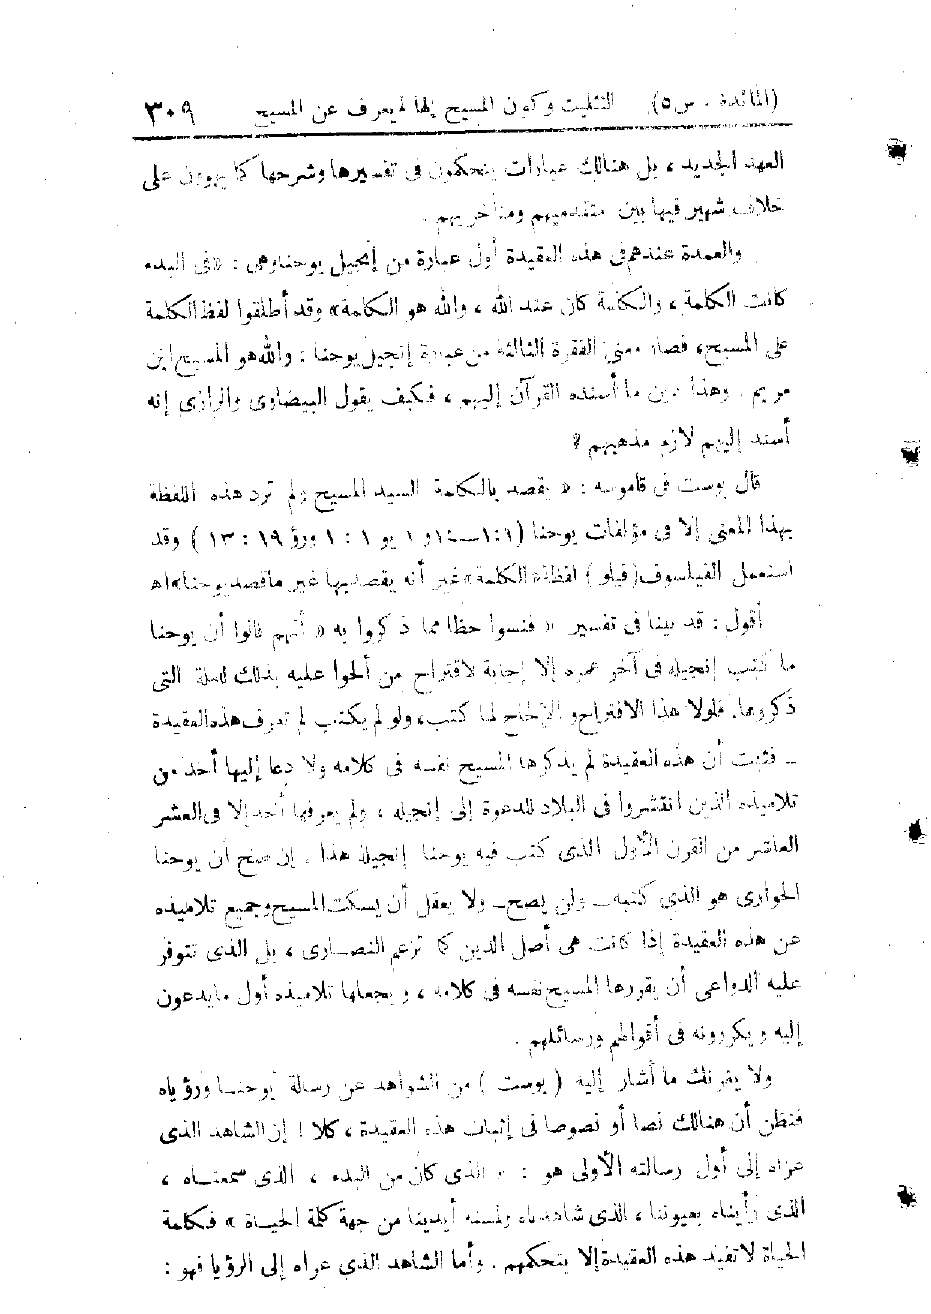 (المائدة . س٥) التثليث وكون المسيح إلها لم يعرف عن المسيح ٣٠٩
العهد الجديد ، بل هنالك عبارات يتحكمون في تفسيرها وشرحها كما يهوون على
خلاف شهير فيها بين متقدميهم ومتأخريهم .
والعمدة عندهم في هذه العقيدة أول عبارة من إنجيل يوحنا وهي : «في البدء
كانت الكلمة ، والكلمة كان عند الله ، والله هو الكلمة» وقد أطلقوا لفظ الكلمة
على المسيح، فصار معنى الفقرة الثالثة من عبارة إنجيل يوحنا : والله هو المسيح ابن
مريم . وهذا عين ما أسنده القرآن إليهم ، فكيف يقول البيضاوى والرازى إنه
أسند إليهم لازم مذهبهم ؟
قال بوست في قاموسه : « يقصد بالكلمة السيد المسيح ولم ترد هذه اللفظة
بهذا المعنى إلا فى مؤلفات يوحنا (١:١ــ١٤ و ١ يو ١ : ١ ورؤ ١٩ : ١٣ ) وقد
استعمل الفيلسوف (فيلو) لفظة «الكلمة» غير أنه يقصد بها غير ما قصد يوحنا» اه
أقول : قد بينا فى تفسير « فنسوا حظا مما ذكروا به » أنهم قالوا أن يوحنا
ما كتب إنجيله فى آخر عمره إلا إجابة لاقتراح من ألحوا عليه بذلك للعلة التى
ذكروها. فلولا هذا الاقتراح والإلحاح لما كتب، ولو لم يكتب لم تعرف هذه العقيدة
ــ فثبت أن هذه العقيدة لم يذكرها المسيح نفسه فى كلامه ولا دعا إليها أحد من
تلاميذه الذين انتشروا فى البلاد للدعوة إلى إنجيله ، ولم يعرفها أحد إلا فى العشر
العاشر من القرن الأول الذى كتب فيه يوحنا إنجيله هذا . إن صح أن يوحنا
الحوارى هو الذى كتبه ــ ولن يصح ــ ولا يعقل أن يسكت المسيح وجميع تلاميذه
عن هذه العقيدة إذا كانت هى أصل الدين كما تزعم النصارى ، بل الذى تتوفر
عليه الدواعى أن يقررها المسيح نفسه فى كلامه ، ويجعلها تلاميذه أول ما يدعون
إليه ويكررونه فى أقوالهم ورسائلهم .
ولا يغرنك ما أشار إليه ( بوست ) من الشواهد عن رسالة يوحنا ورؤياه
فتظن أن هنالك نصا أو نصوصا فى إثبات هذه العقيدة ، كلا ! إن الشاهد الذى
عزاه إلى أول رسالته الأولى هو : « الذى كان من البدء ، الذى سمعناه ،
الذى رأيناه بعيوننا ، الذى شاهدناه ولمسته أيدينا من جهة كلمة الحياة » فكلمة
الحياة لا تفيد هذه العقيدة إلا بتحكمهم . وأما الشاهد الذي عزاه إلى الرؤيا فهو :